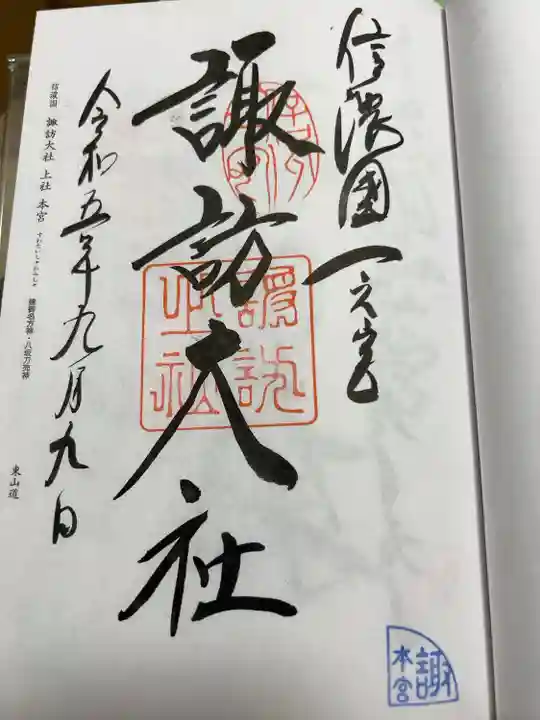 信濃國一之宮
諏訪大社
令和五年九月九日
信濃国 諏訪大社 上社 本宮 すわたいしゃかみしゃ 建御名方神・八坂刀売神
東山道
諏訪
大社
諏
本宮